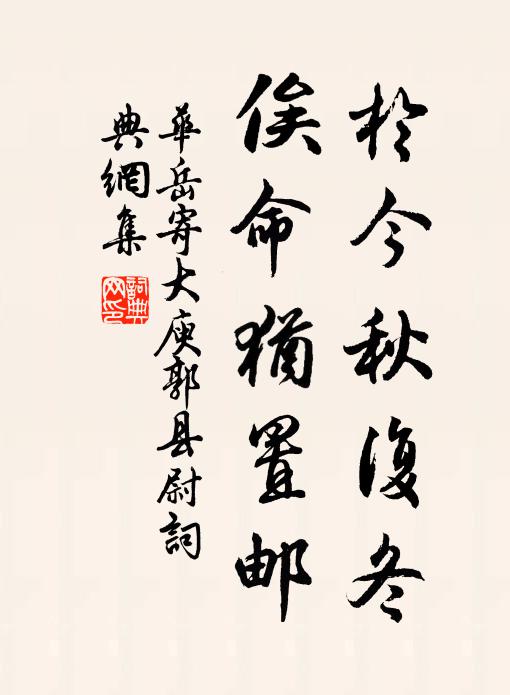 於今秋復冬
俟命猶置邮
華岳寄大庾郭县尉詞
典網集
詞典网印